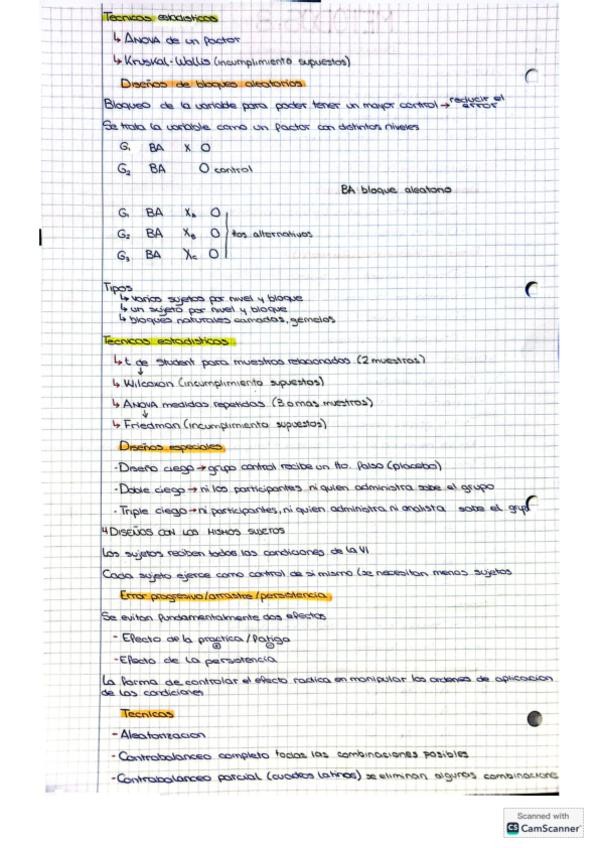 Tecnicas estadisticas
↳ ANOVA de un factor
↳ Kruskal-Wallis (incumplimiento supuestos)
Diseños de bloques aleatorios
Bloqueo de la variable para poder tener un mayor control → reducir el error
Se trata la variable como un factor con distintos niveles
G₁ BA X O
G₂ BA O control
BA bloque aleatorio
G₁ BA Xₐ O
G₂ BA X_B O ttos alternativos
G₃ BA X_C O
Tipos
↳ varios sujetos por nivel y bloque
↳ un sujeto por nivel y bloque
↳ bloques naturales camadas, gemelos
Tecnicas estadisticas
↳ t de Student para muestras relacionadas (2 muestras)
↳ Wilcoxon (incumplimiento supuestos)
↳ ANOVA medidas repetidas (3 o mas muestras)
↳ Friedman (incumplimiento supuestos)
Diseños especiales
·Diseño ciego → grupo control recibe un tto. falso (placebo)
·Doble ciego → ni los participantes, ni quien administra sabe el grupo
·Triple ciego → ni participantes, ni quien administra ni analista sabe el grupo
4 DISEÑOS CON LOS MISMOS SUJETOS
Los sujetos reciben todas las condiciones de la VI
Cada sujeto ejerce como control de si mismo (se necesitan menos sujetos
Error progresivo/arrastre/persistencia
Se evitan fundamentalmente dos efectos
- Efecto de la practica/fatiga
⊕ ⊖
- Efecto de la persistencia
La forma de controlar el efecto radica en manipular los ordenes de aplicacion
de las condiciones
Tecnicas
- Aleatorizacion
- Contrabalanceo completo todas las combinaciones posibles
- Contrabalanceo parcial (cuadros latinos) se eliminan algunas combinaciones
Scanned with
CS CamScanner